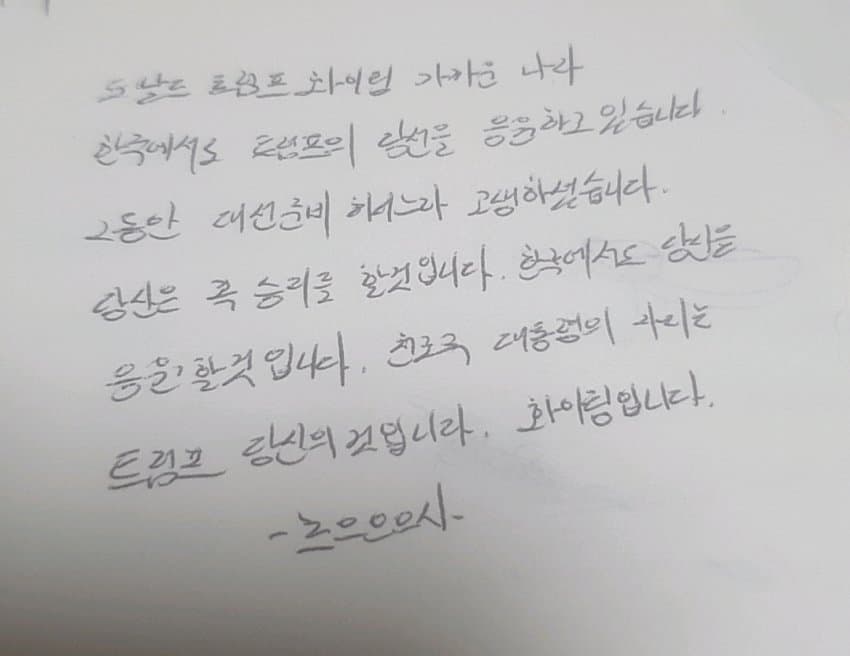 도날드 트럼프 화이팅 가까운 나라
한국에서도 트럼프의 당선을 응원하고 있습니다.
그동안 대선준비 하시느라 고생하셨습니다.
당신은 꼭 승리를 할것입니다. 한국에서도 당신을
응원 할것입니다. 대통령의 자리는
트럼프 당신의것입니다. 화이팅입니다.